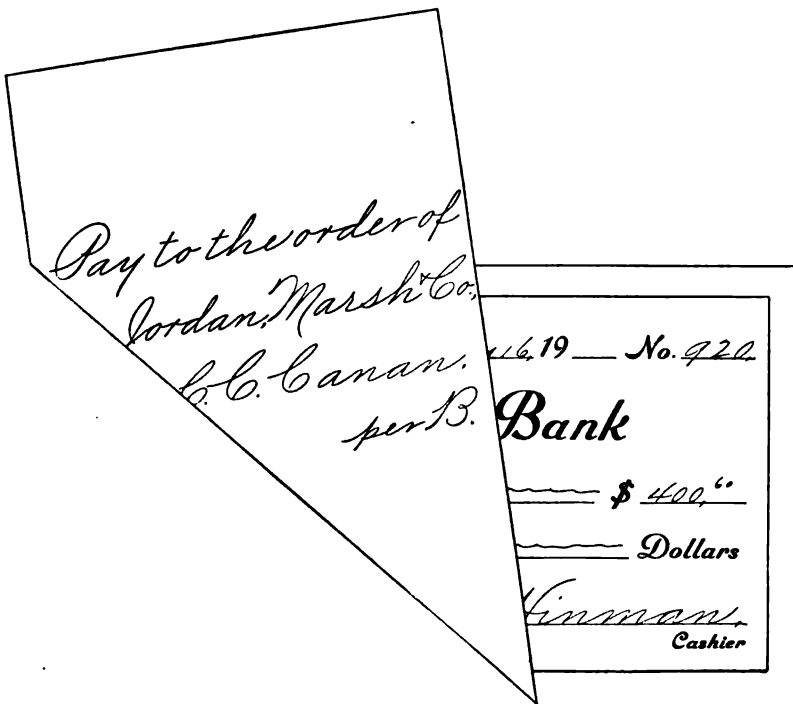 Pay to the order of
Jordan, Marsh & Co.,
C. C. Canan.
per B.
16, 19 No. 920.
Bank
$ 400,60
Dollars
Hinman,
Cashier